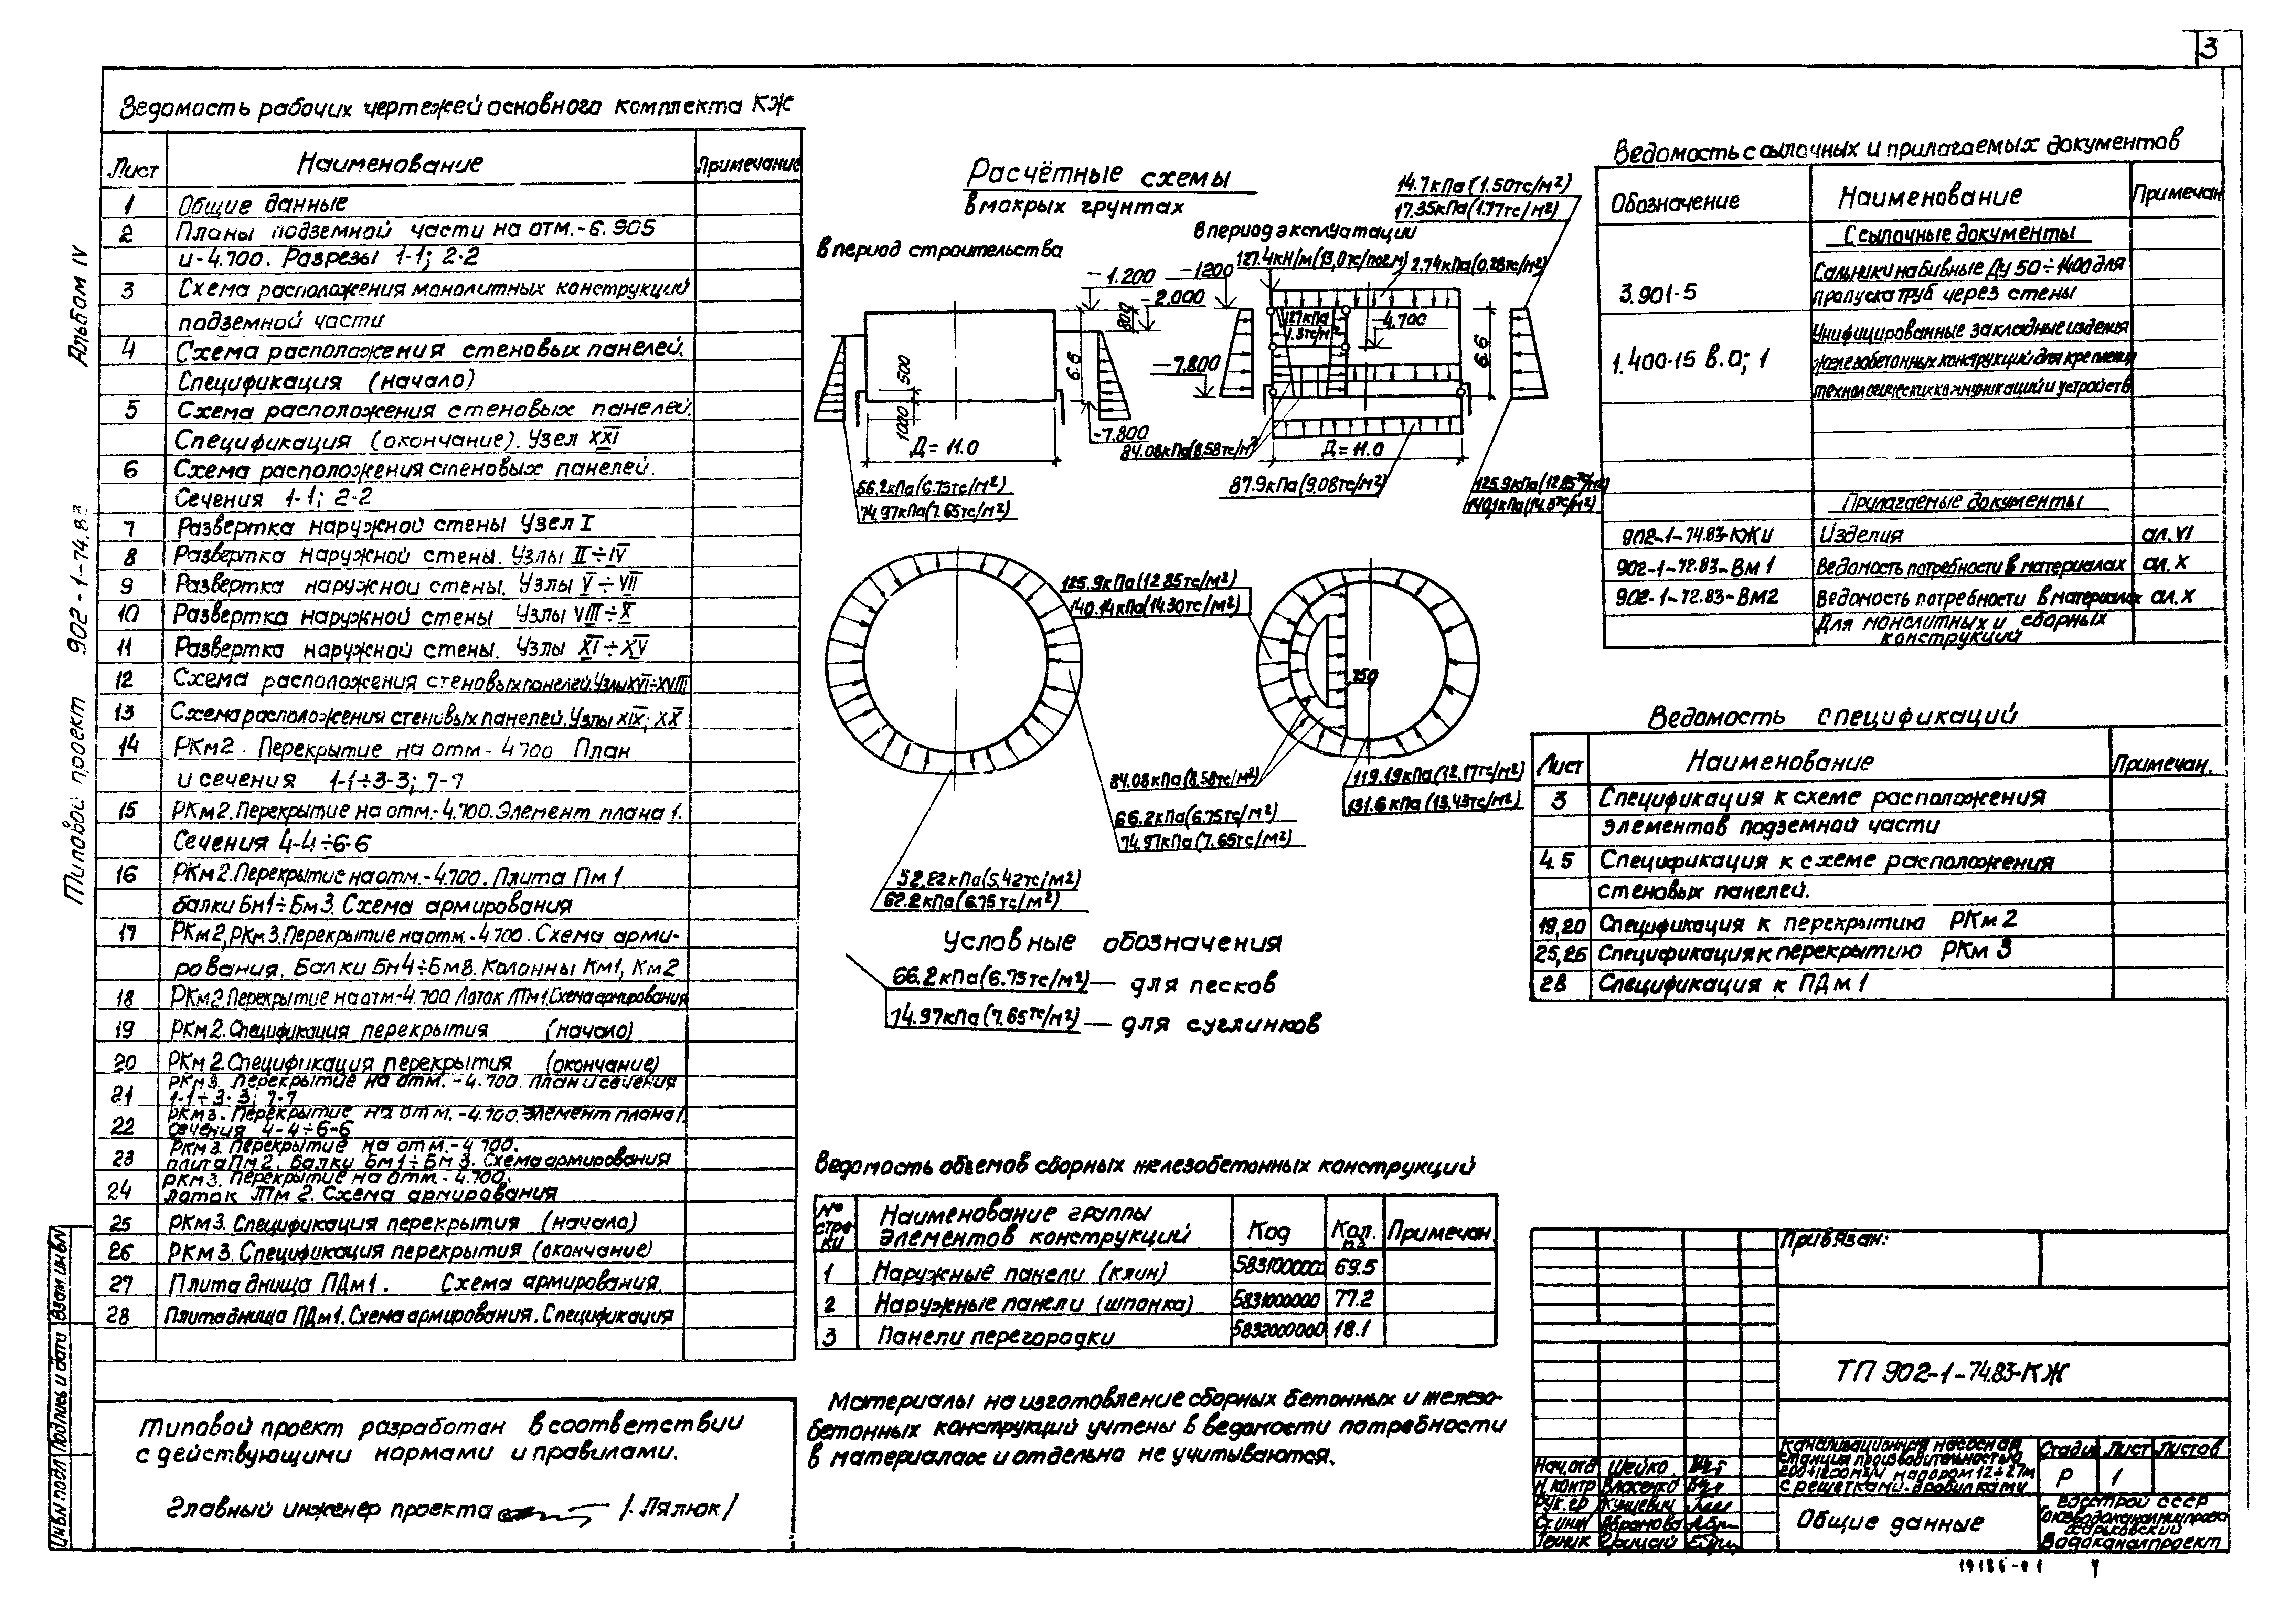 3
Ведомость рабочих чертежей основного комплекта КЖ
Лист Наименование Примечание
1 Общие данные
2 Планы подземной части на отм.-6.905
и-4.700. Разрезы 1-1; 2-2
3 Схема расположения монолитных конструкций
подземной части
4 Схема расположения стеновых панелей.
Спецификация (начало)
5 Схема расположения стеновых панелей.
Спецификация (окончание). Узел XXI
6 Схема расположения стеновых панелей.
Сечения 1-1; 2-2
7 Развертка наружной стены Узел I
8 Развертка наружной стены. Узлы II÷IV
9 Развертка наружной стены. Узлы V÷VII
10 Развертка наружной стены Узлы VIII÷X
11 Развертка наружной стены. Узлы XI÷XV
12 Схема расположения стеновых панелей. Узлы XVI÷XVIII
13 Схема расположения стеновых панелей. Узлы XIX; XX
14 РКм2. Перекрытие на отм-4700 План
и сечения 1-1÷3-3; 7-7
15 РКм2. Перекрытие на отм.-4.700. Элемент плана 1.
Сечения 4-4÷6-6
16 РКм2. Перекрытие на отм.-4.700. Плита Пм1
балки Бм1÷Бм3. Схема армирования
17 РКм2, РКм3. Перекрытие на отм.-4.700. Схема арми-
рования. Балки Бм4÷Бм8. Колонны Км1, Км2
18 РКм2 Перекрытие на отм.-4.700. Лоток ЛТм1. Схема армирования
19 РКм2. Спецификация перекрытия (начало)
20 РКм2. Спецификация перекрытия (окончание)
21 РКм3. Перекрытие на отм. -4.700. План и сечения
1-1÷3-3; 7-7
22 РКм3. Перекрытие на отм. -4.700. Элемент плана 1.
Сечения 4-4÷6-6
23 РКм3. Перекрытие на отм.-4 700.
плита Пм2. Балки Бм1÷Бм3. Схема армирования
24 РКм3. Перекрытие на отм.-4.700.
лоток ЛТм2. Схема армирования
25 РКм3. Спецификация перекрытия (начало)
26 РКм3. Спецификация перекрытия (окончание)
27 Плита днища ПДм1. Схема армирования.
28 Плита днища ПДм1. Схема армирования. Спецификация
Типовой проект разработан в соответствии
с действующими нормами и правилами.
Главный инженер проекта /Лялюк/
Альбом IV
Типовой проект 902-1-74.83
Инв N подл Подпись и дата Взам. инв N
Расчётные схемы
в мокрых грунтах
в период строительства
в период эксплуатации
14.7кПа (1.50тс/м²)
17.35кПа (1.77тс/м²)
127.4кН/м (13,0тс/пог.м)
2.74кПа (0,28тс/м²)
-1.200
-1200
-2.000
800
127кПа
1.3тс/м²
-4.700
-7.800
6.6
6.6
500
1000
-7.800
Д=11.0
Д=11.0
84.08кПа (8.58тс/м²)
66.2кПа (6.75тс/м²)
74.97кПа (7.65тс/м²)
87.9кПа (9.08тс/м²)
125.9кПа (12.85тс/м²)
140.1кПа (14.3тс/м²)
125.9кПа (12.85тс/м²)
140.14кПа (14.30тс/м²)
750
84.08кПа (8.58тс/м²)
119.19кПа (12,17тс/м²)
131.6кПа (13.43тс/м²)
66.2кПа (6.75тс/м²)
74.97кПа (7.65тс/м²)
52.22кПа (5.42тс/м²)
62.2кПа (6.75тс/м²)
Условные обозначения
66.2кПа (6.75тс/м²) — для песков
74.97кПа (7.65тс/м²) — для суглинков
Ведомость объемов сборных железобетонных конструкций
№ строки Наименование группы элементов конструкций Код Кол. м3 Примечан.
1 Наружные панели (клин) 5831000000 69.5
2 Наружные панели (шпонка) 5831000000 77.2
3 Панели перегородки 5832000000 18.1
Материалы на изготовление сборных бетонных и железо-
бетонных конструкций учтены в ведомости потребности
в материалах и отдельно не учитываются.
Ведомость ссылочных и прилагаемых документов
Обозначение Наименование Примечан
Ссылочные документы
3.901-5 Сальники набивные Ду 50÷1400 для
пропуска труб через стены
1.400-15 в.0; 1 Унифицированные закладные изделия
железобетонных конструкций для крепления
технологических коммуникаций и устройств
Прилагаемые документы
902-1-74.83-КЖИ Изделия ал. VI
902-1-72.83-ВМ1 Ведомость потребности в материалах ал. X
902-1-72.83-ВМ2 Ведомость потребности в материалах ал. X
Для монолитных и сборных
конструкций
Ведомость спецификаций
Лист Наименование Примечан.
3 Спецификация к схеме расположения
элементов подземной части
4.5 Спецификация к схеме расположения
стеновых панелей.
19,20 Спецификация к перекрытию РКм2
25,26 Спецификация к перекрытию РКм3
28 Спецификация к ПДм1
Привязан:
ТП 902-1-74.83-КЖ
Канализационная насосная
станция производительностью
200÷1200м3/ч напором 12÷27м
с решетками-дробилками
Стадия Лист Листов
Р 1
Нач.отд Шейко
Н.контр Власенко
Рук.гр Куцевич
Ст.инж Абрамова
Техник Грицай
Общие данные
Госстрой СССР
Союзводоканалниипроект
Харьковский
Водоканалпроект
19186-01 4